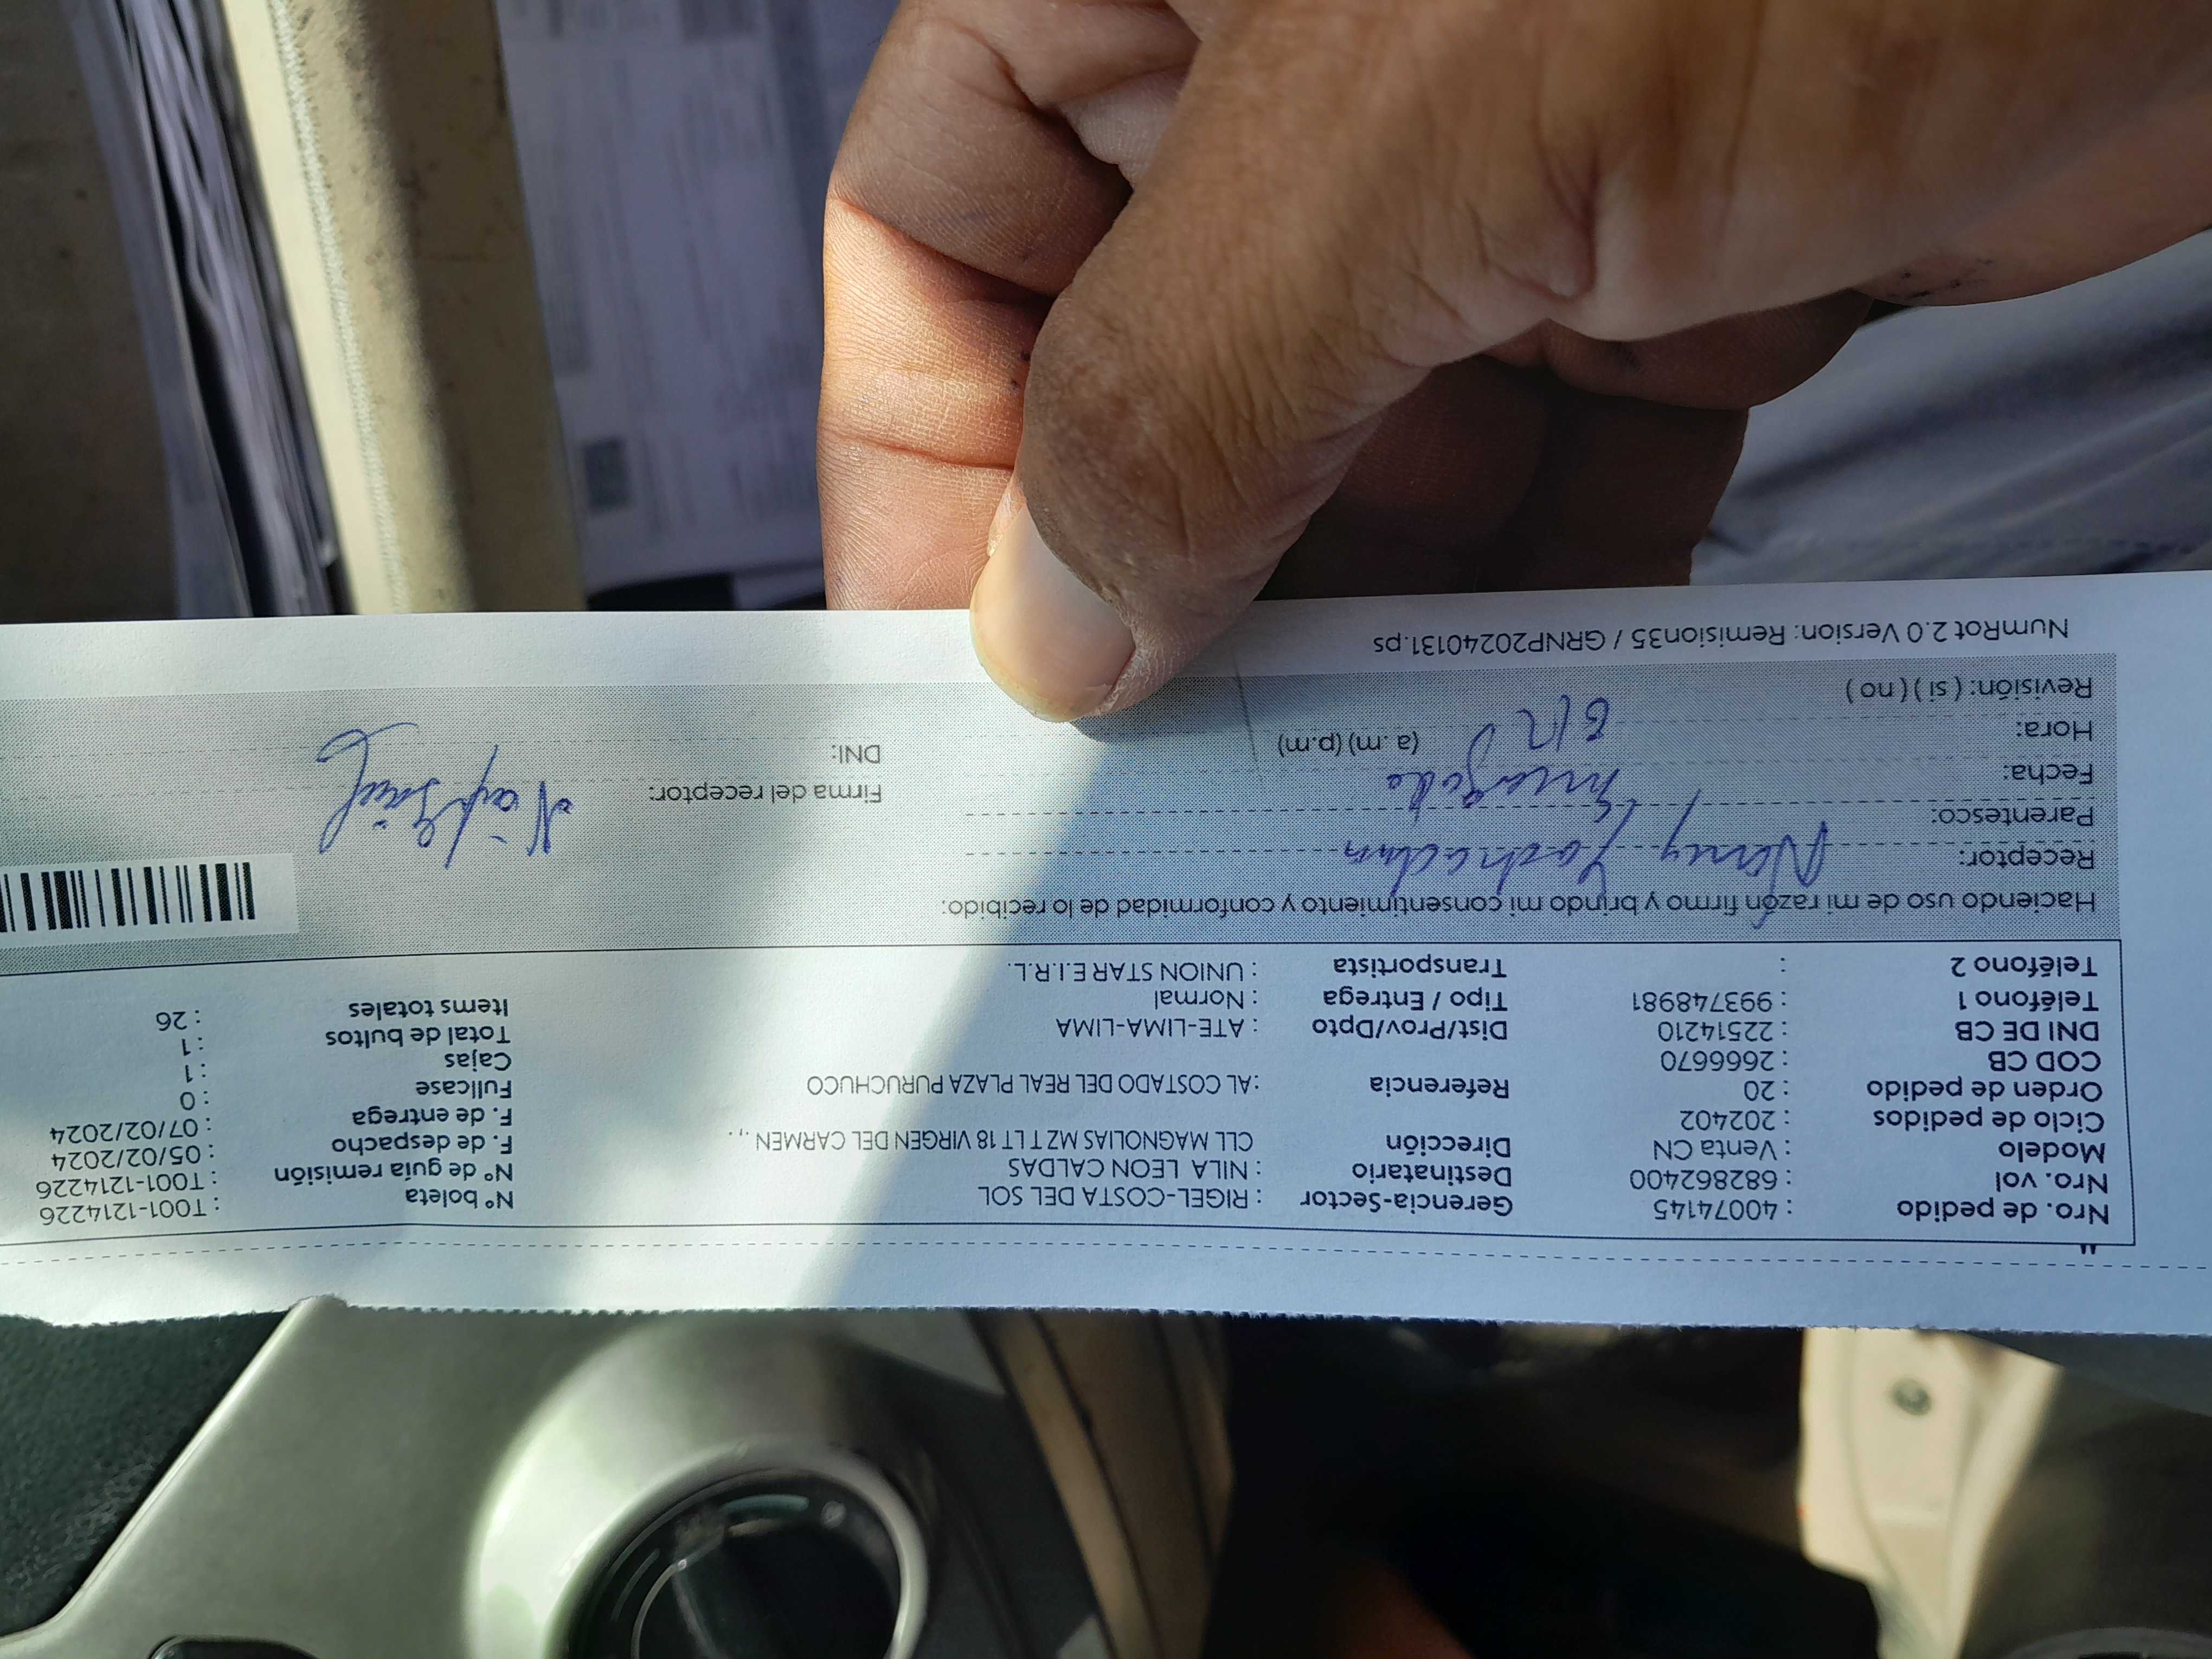 "
Nro. de pedido : 40074145 Gerencia-Sector : RIGEL-COSTA DEL SOL Nº boleta : T001-1214226
Nro. vol : 682862400 Destinatario : NILA LEON CALDAS Nº de guía remisión : T001-1214226
Modelo : Venta CN Dirección CLL MAGNOLIAS MZ T LT 18 VIRGEN DEL CARMEN ., . F. de despacho : 05/02/2024
Ciclo de pedidos : 202402 F. de entrega : 07/02/2024
Orden de pedido : 20 Referencia :AL COSTADO DEL REAL PLAZA PURUCHUCO Fullcase : 0
COD CB : 2666670 Cajas : 1
DNI DE CB : 22514210 Dist/Prov/Dpto : ATE-LIMA-LIMA Total de bultos : 1
Teléfono 1 : 993748981 Tipo / Entrega : Normal Items totales : 26
Teléfono 2 : Transportista : UNION STAR E.I.R.L.
Haciendo uso de mi razón firmo y brindo mi consentimiento y conformidad de lo recibido:
Receptor: Nancy
Parentesco:
Fecha: Firma del receptor:
Hora: (a .m) (p.m) DNI:
Revisión: ( si ) ( no )
NumRot 2.0 Version: Remision35 / GRNP20240131.ps